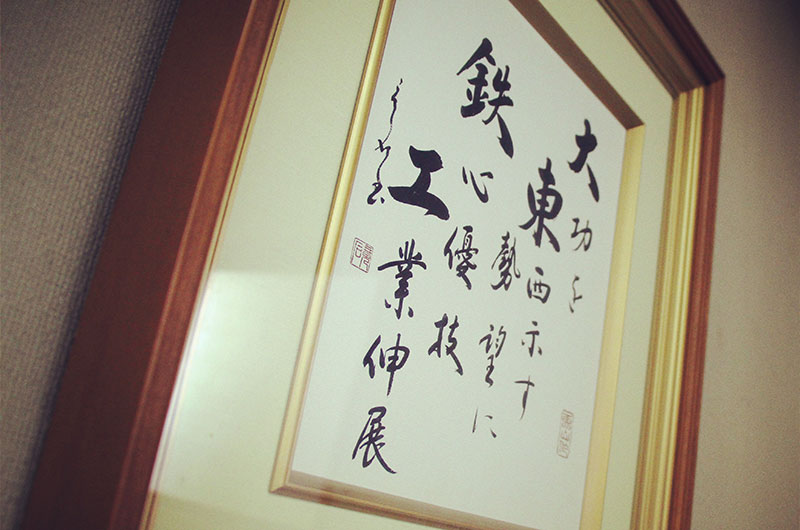 大功を
東西示す
勢望に
鉄心優技
工業伸展